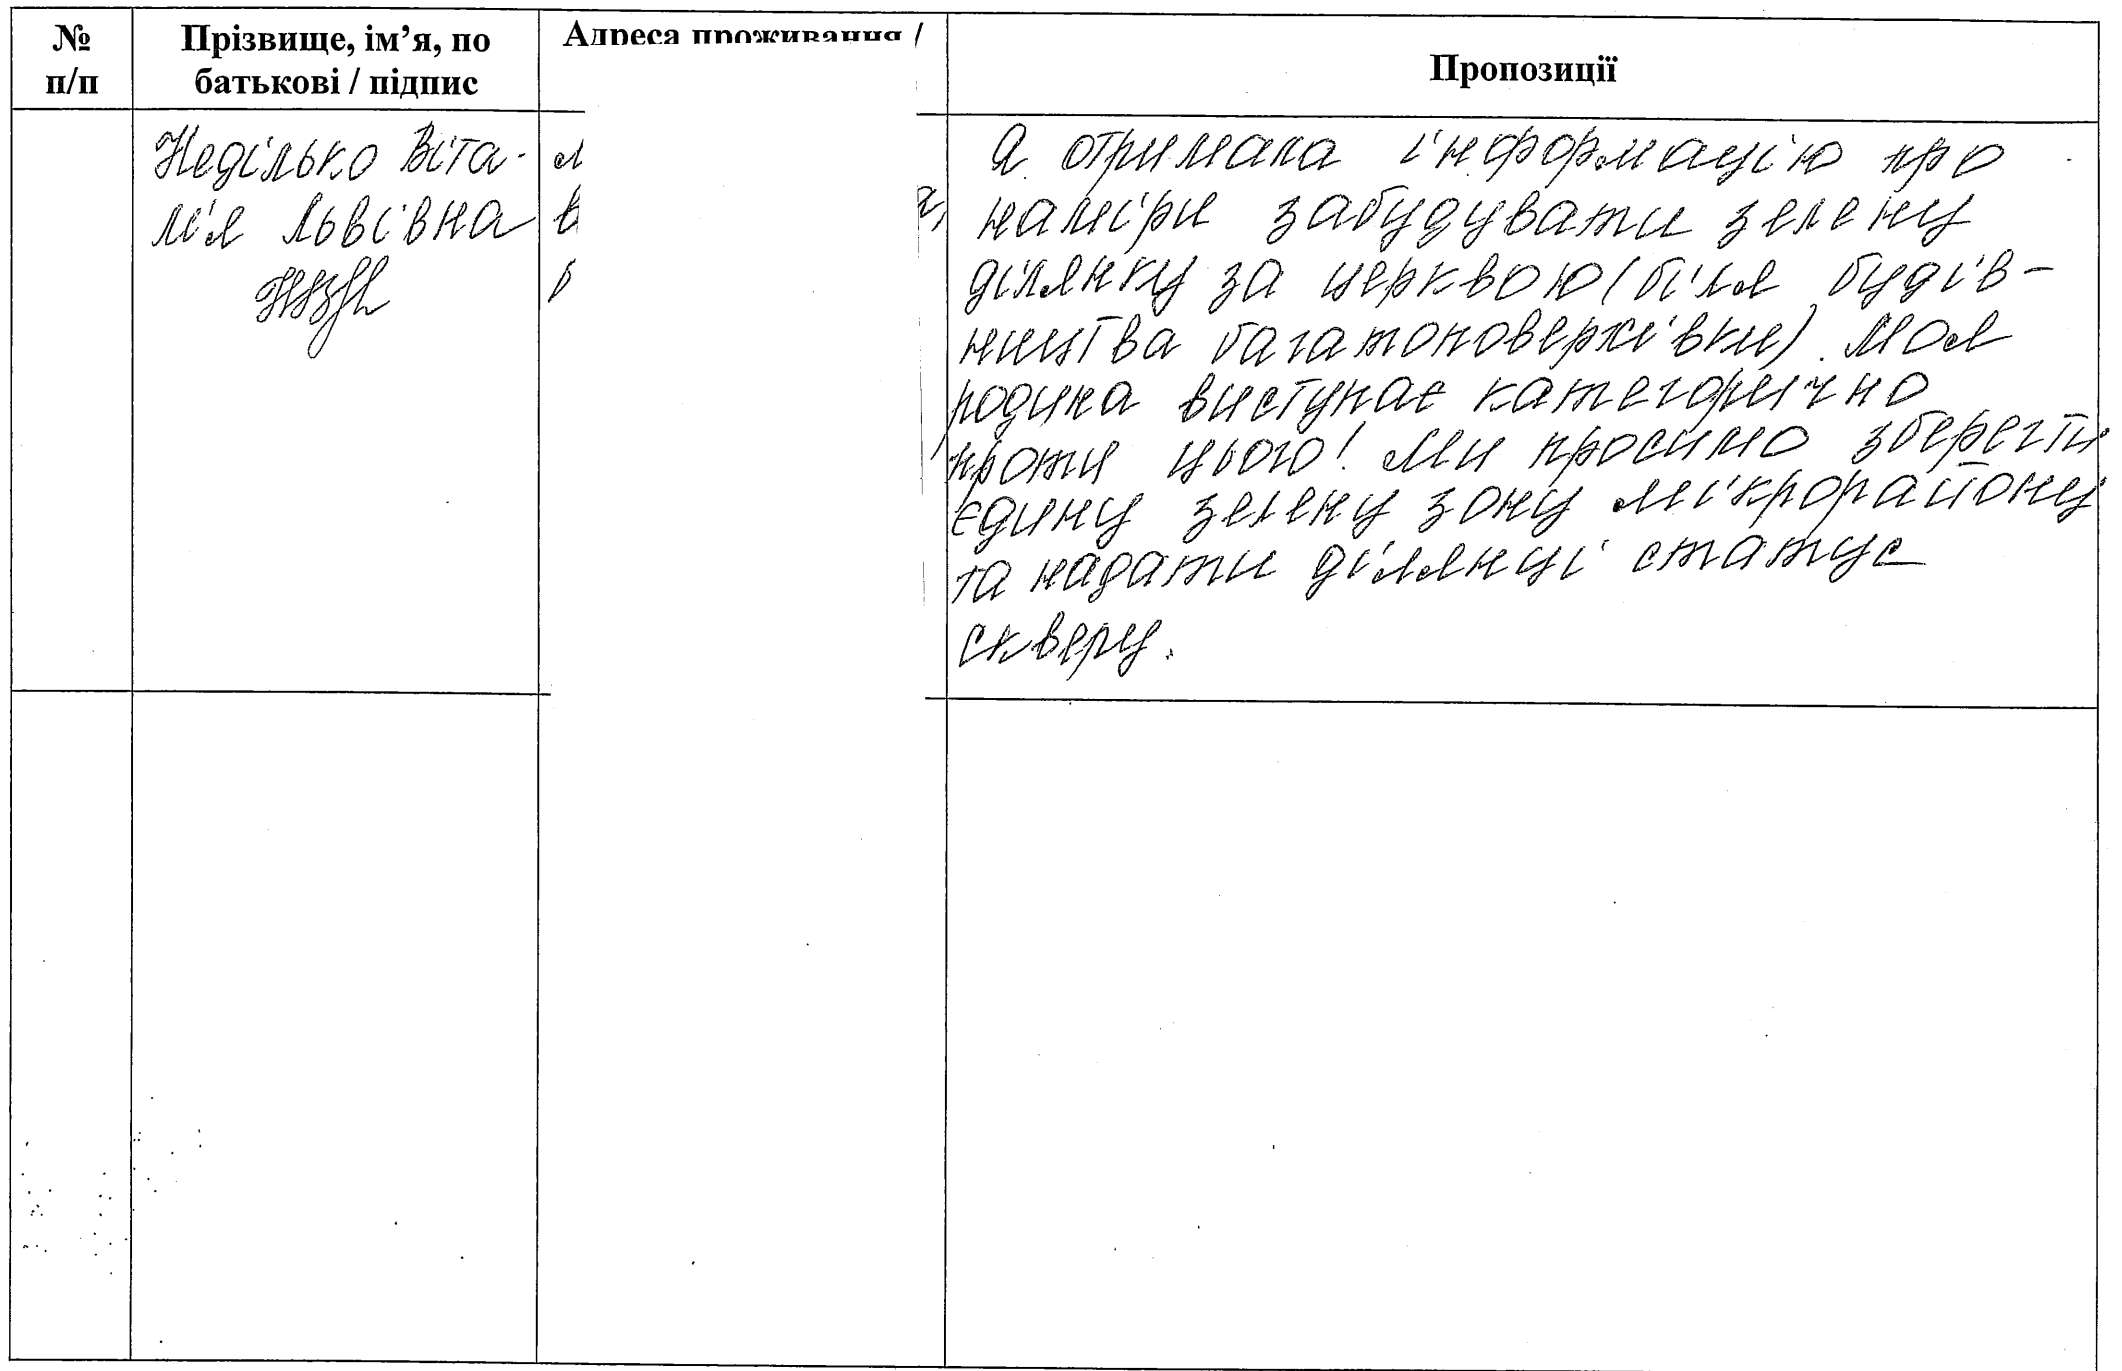 №
п/п
Прізвище, ім’я, по
батькові / підпис
Адреса проживання /
Пропозиції
Неділько Віта-
лія Львівна
Я отримала інформацію про
наміри забудувати зелену
ділянку за церквою (біля будів-
ництва багатоповерхівки). Моя
родина виступає категорично
проти цього! Ми просимо зберегти
єдину зелену зону мікрорайону
та надати ділянці статус
скверу.